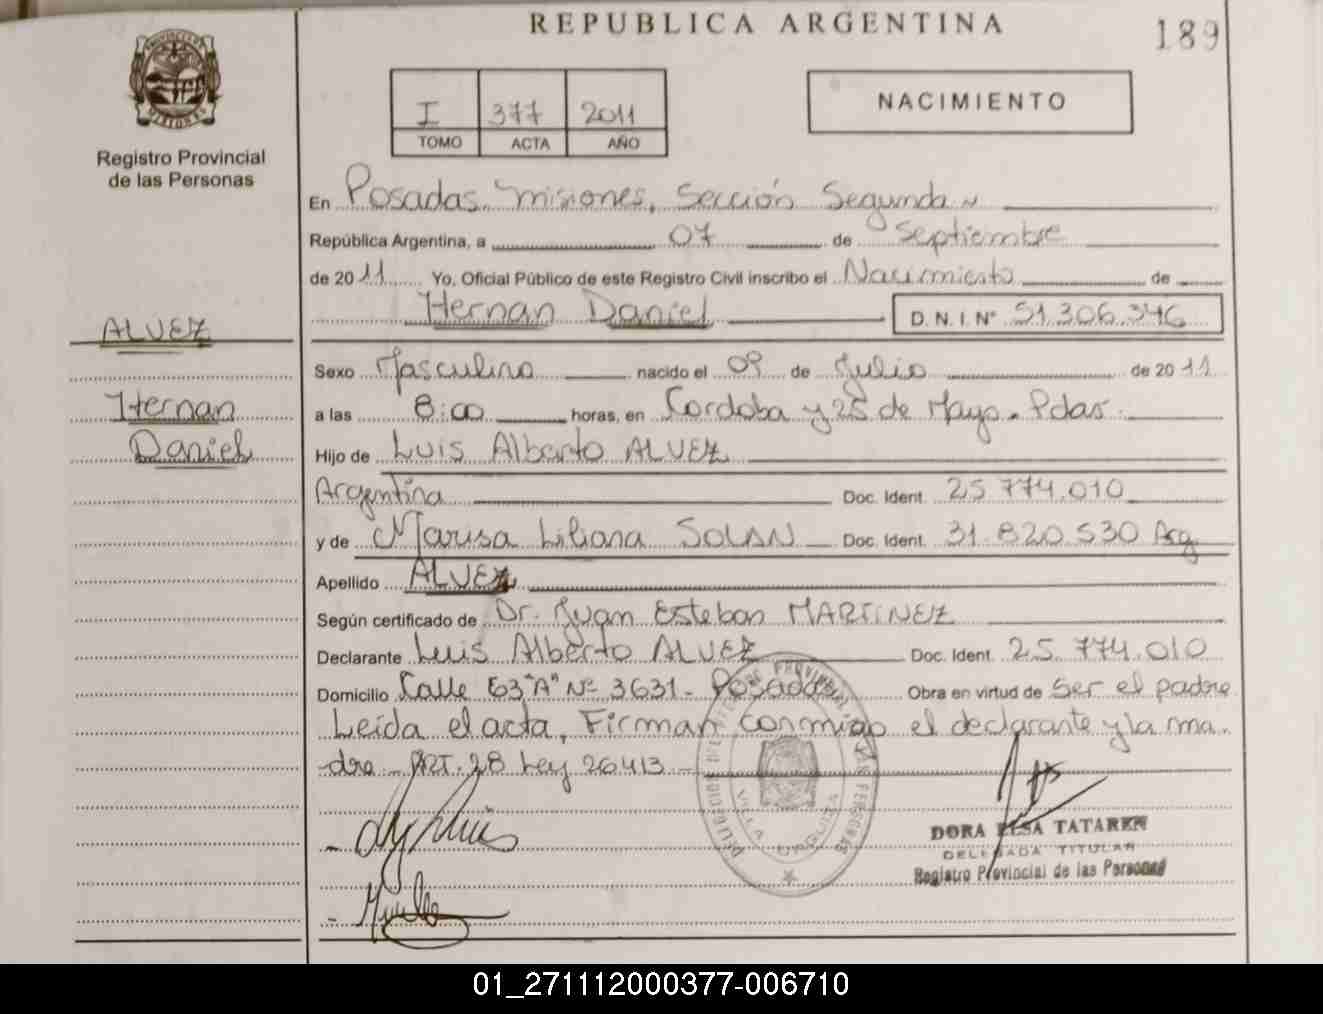 REPUBLICA ARGENTINA
189
Registro Provincial
de las Personas
I 377 2011
TOMO ACTA AÑO
NACIMIENTO
En Posadas, Misiones, Sección Segunda
República Argentina, a 07 de Septiembre
de 2011 Yo, Oficial Público de este Registro Civil inscribo el Nacimiento de
Hernan Daniel D.N.I. Nº 51.306.346
ALVEZ
Hernan
Daniel
Sexo Masculino nacido el 09 de Julio de 2011
a las 8:00 horas, en Cordoba y 25 de Mayo. Pdas.
Hijo de Luis Alberto ALVEZ
Argentina Doc. Ident. 25.774.010
y de Marisa Liliana SOLAN Doc. Ident. 31.820.530 Arg
Apellido ALVEZ
Según certificado de Dr. Juan Esteban MARTINEZ
Declarante Luis Alberto ALVEZ Doc. Ident. 25.774.010
Domicilio Calle 63 "A" Nº 3631 - Posadas Obra en virtud de Ser el padre
Leida el acta, Firman conmigo el declarante y la ma-
dre - ART. 28 Ley 26413 -
VILLA URQUIZA
DORA ELSA TATAREN
DELEGADA TITULAR
Registro Provincial de las Personas
01_271112000377-006710